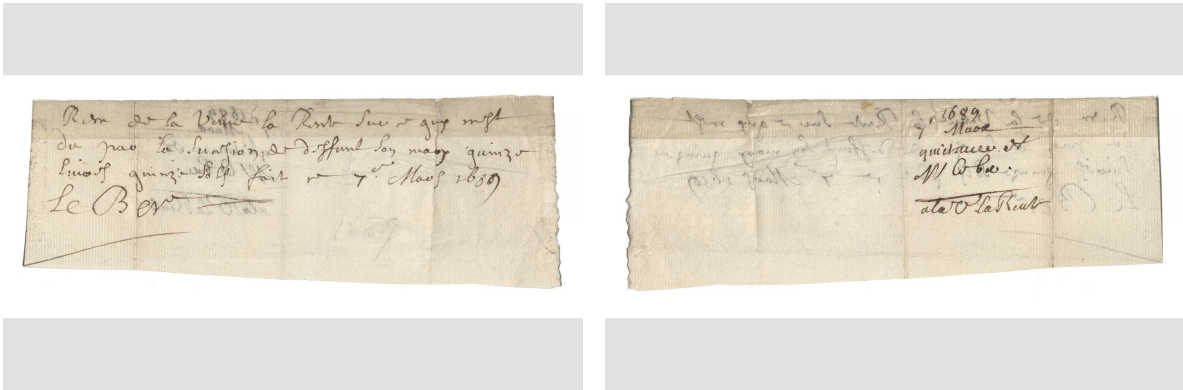 Recu de la Veuve la Rente sur ce quy mest
du par la sucesion de deffunt son mary quinze
Livres quinze sols fait ce 7e Mars 1689
Le Ber
1689
Mars
quictance de
Mr le ber
a la Ve La Rente